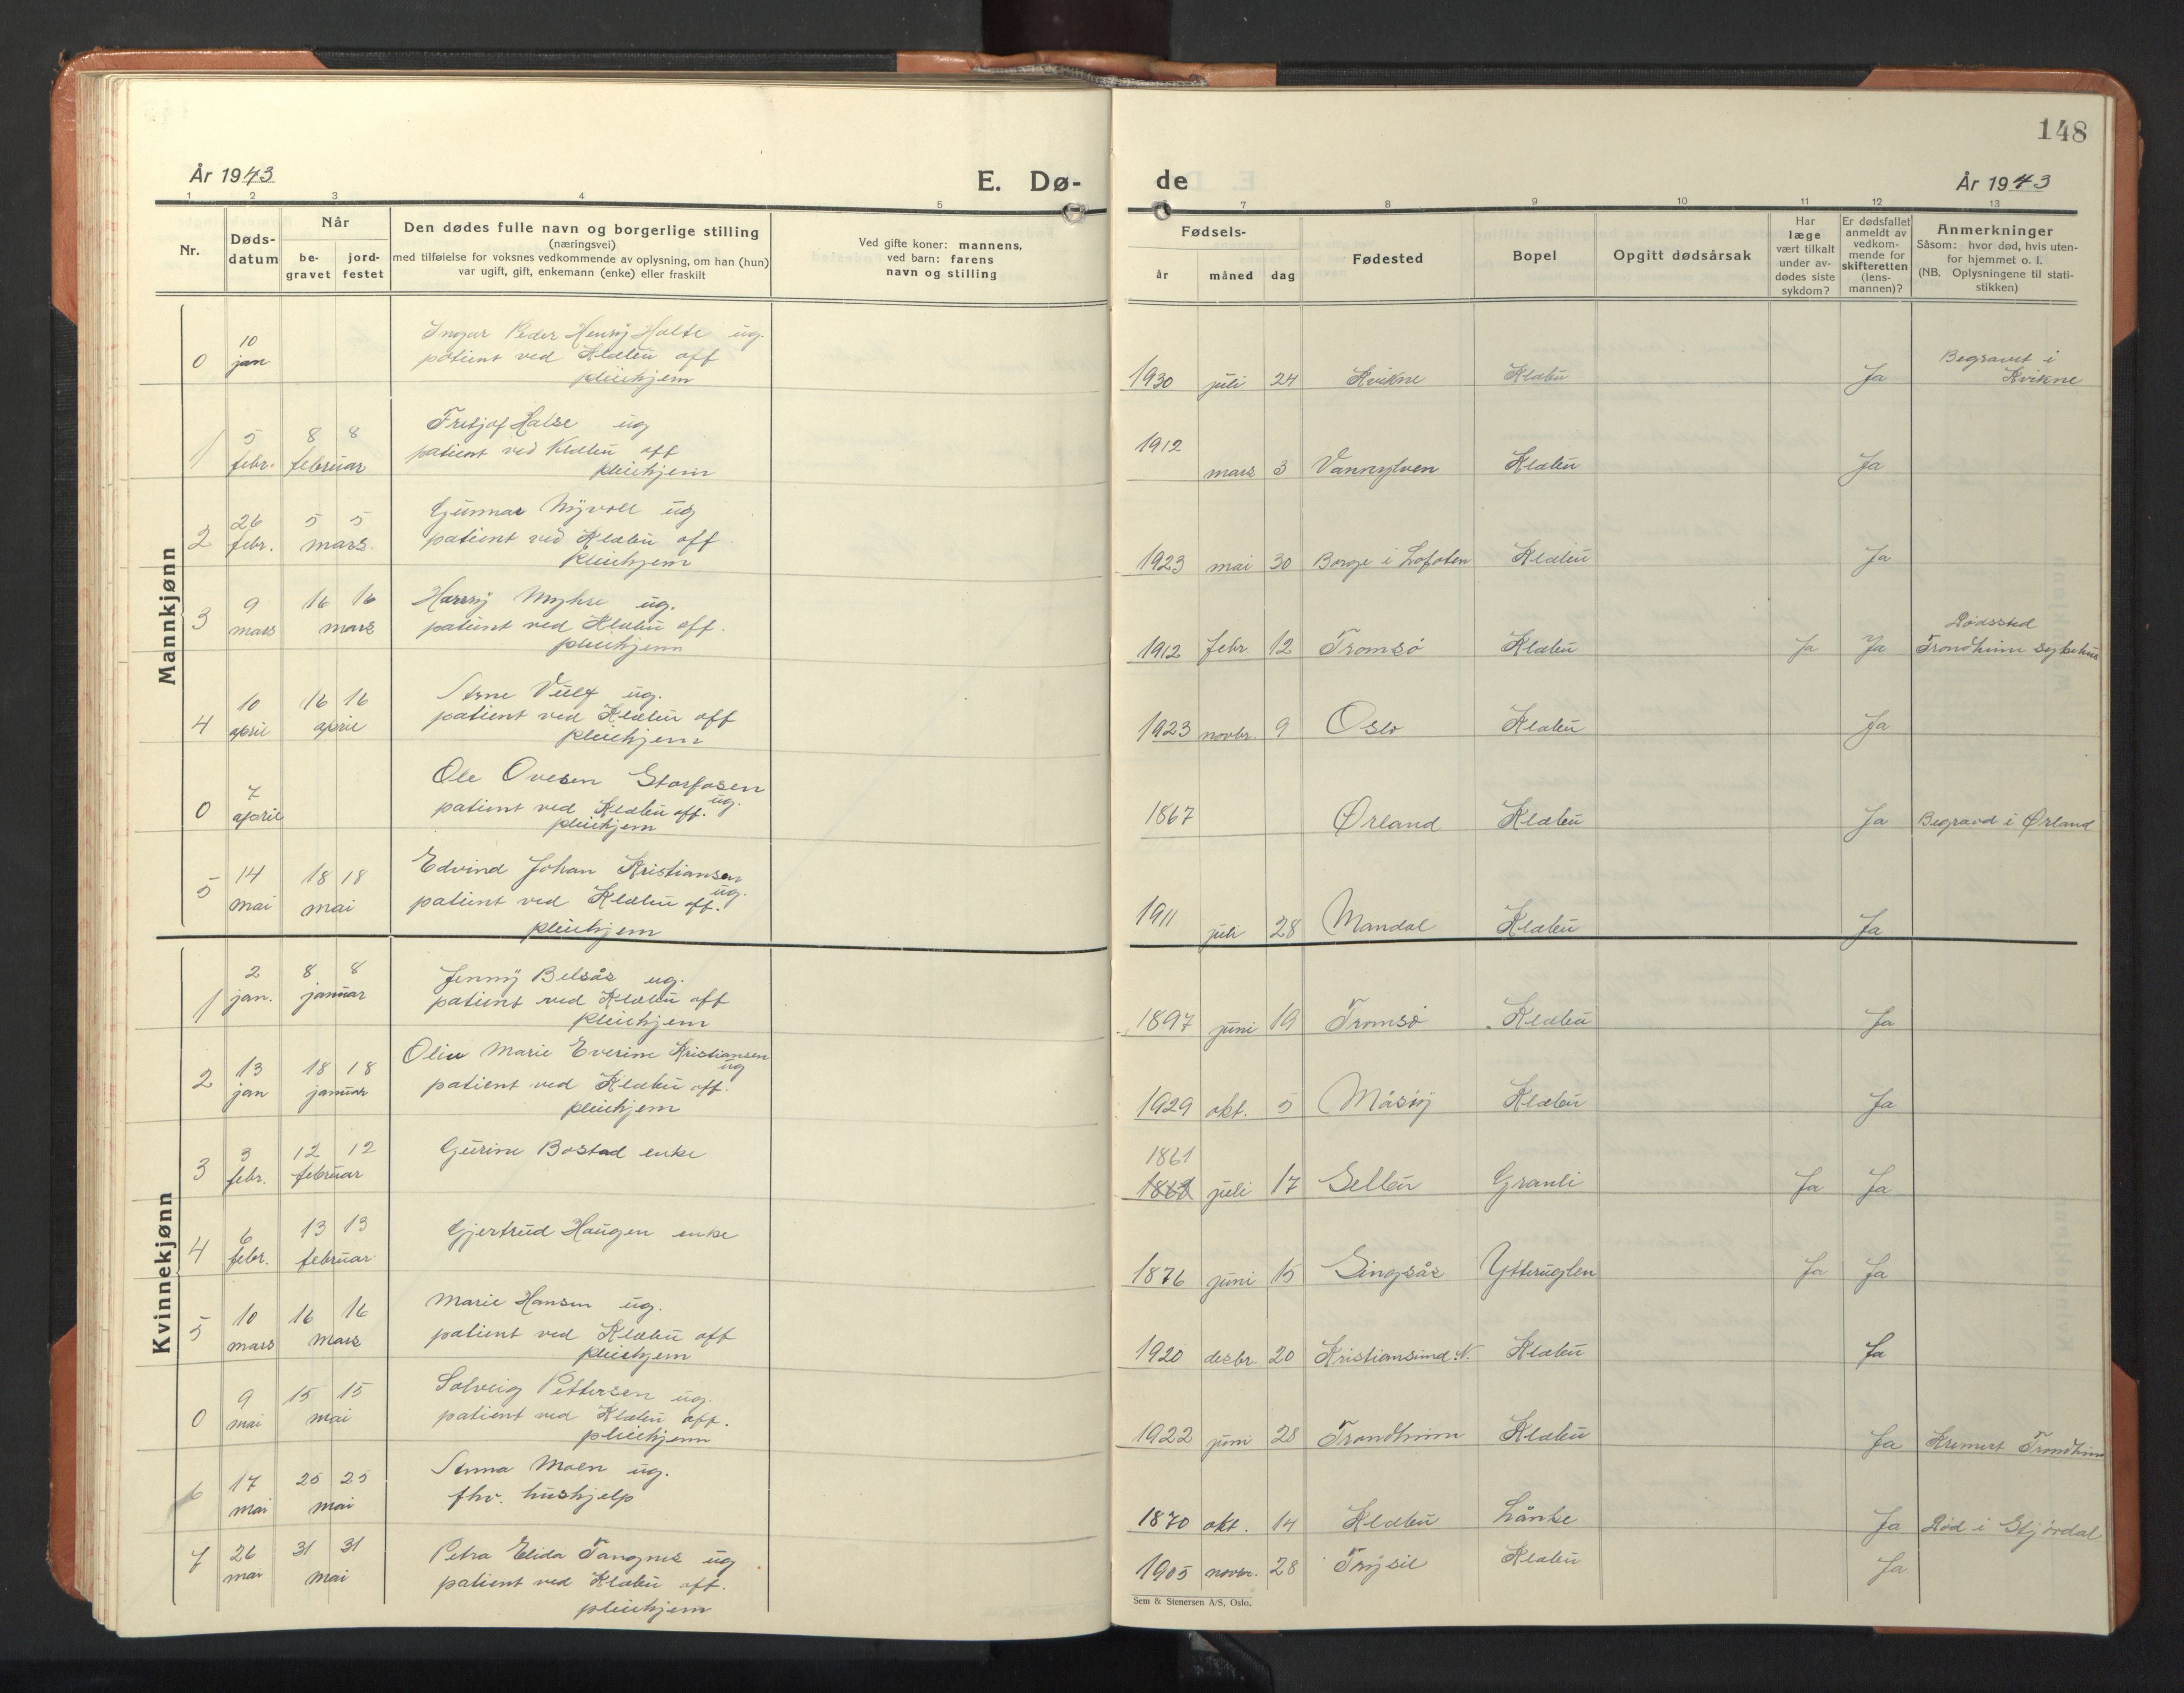 148
År 1943
E. Dø-
de
År 1943
1 2 3 4 5 7 8 9 10 11 12 13
Nr.
Døds-
datum
Når
be-
gravet
jord-
festet
Den dødes fulle navn og borgerlige stilling
(næringsvei)
med tilføielse for voksnes vedkommende av oplysning, om han (hun)
var ugift, gift, enkemann (enke) eller fraskilt
Ved gifte koner: mannens,
ved barn: farens
navn og stilling
Fødsels-
år måned dag
Fødested
Bopel
Opgitt dødsårsak
Har
læge
vært tilkalt
under av-
dødes siste
sykdom?
Er dødsfallet
anmeldt av
vedkom-
mende for
skifteretten
(lens-
mannen)?
Anmerkninger
Såsom: hvor død, hvis uten-
for hjemmet o. l.
(NB. Oplysningene til stati-
stikken)
Mannkjønn
0 10 jan
Ingar Peder Henrij Holte ug.
patient ved Klæbu off
pleiehjem
1930 juli 24 Kvikne Klæbu Ja
Begravet i
Kvikne
1 5 febr. 8 8 februar
Fretjof Halse ug
patient ved Klæbu off
pleiehjem
1912 mars 3 Vannylven Klæbu Ja
2 26 febr. 5 5 mars
Gunnar Nyvoll ug
patient ved Klæbu off
pleiehjem
1923 mai 30 Borge i Lofoten Klæbu Ja
3 9 mars 16 16 mars
Harry Myhre ug.
patient ved Klæbu off.
pleiehjem
1912 febr. 12 Tromsø Klæbu Ja Ja
Dødssted
Trondheim sykehus
4 10 april 16 16 april
Arne Vulf ug.
patient ved Klæbu off
pleiehjem
1923 novbr. 9 Oslo Klæbu Ja
0 7 april
Ole Ovesen Storfosen
ug.
patient ved Klæbu off.
pleiehjem
1867 Ørland Klæbu Ja Begravd i Ørland
5 14 mai 18 18 mai
Edvind Johan Kristiansen
ug.
patient ved Klæbu off.
pleiehjem
1911 juli 28 Mandal Klæbu Ja
Kvinnekjønn
1 2 jan. 8 8 januar
Jenny Belsås ug.
patient ved Klæbu off
pleiehjem
1897 juni 19 Tromsø Klæbu Ja
2 13 jan 18 18 januar
Olin Marie Everine Kristiansen
ug
patient ved Klæbu off.
pleiehjem
1929 okt. 5 Måsøy Klæbu Ja
3 3 febr. 12 12 februar
Gurine Bostad enke
1861
juli 17 Selbu Granli Ja Ja
4 6 febr. 13 13 februar
Gjertrud Haugen enke
1876 juni 15 Singsås Ytteruglen Ja Ja
5 10 mars 16 16 mars
Marie Hansen ug.
patient ved Klæbu off
pleiehjem
1920 desbr. 20 Kristiansund N. Klæbu Ja
0 9 mai 15 15 mai
Solveig Pettersen ug.
patient ved Klæbu off.
pleiehjem
1922 juni 28 Trondheim Klæbu Ja Kremert Trondheim
6 17 mai 25 25 mai
Anna Moen ug.
fhv. hushjelp
1870 okt. 14 Klæbu Lånke Ja Død i Stjørdal
7 26 mai 31 31 mai
Petra Elida Tangnes ug
patient ved Klæbu off.
pleiehjem
1905 novbr. 28 Trysil Klæbu Ja
Sem & Stenersen A/S, Oslo.